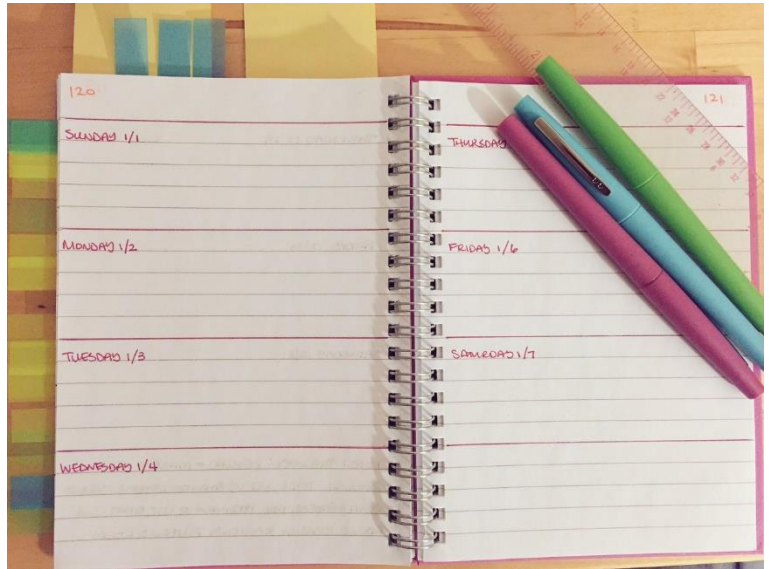 120
SUNDAY 1/1
MONDAY 1/2
TUESDAY 1/3
WEDNESDAY 1/4
121
THURSDAY
FRIDAY 1/6
SATURDAY 1/7